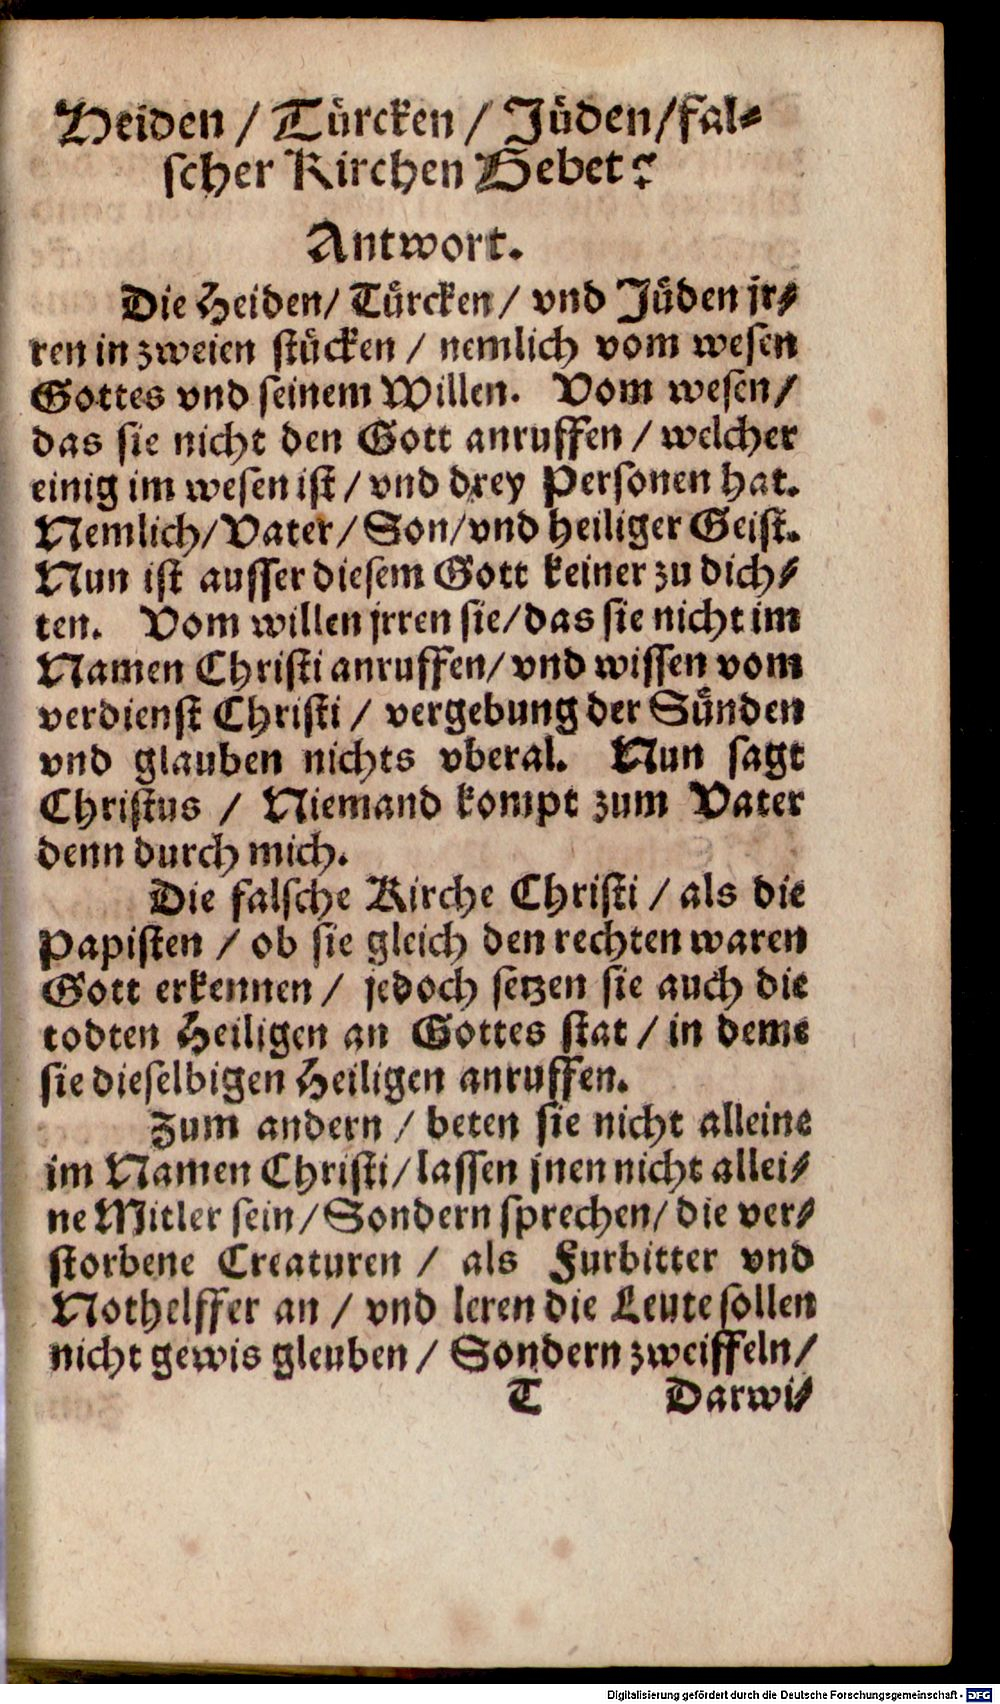 Heiden / Türcken / Jüden / fal-
scher Kirchen Gebet?
Antwort.
Die Heiden / Türcken / vnd Jüden jr-
ren in zweien stücken / nemlich vom wesen
Gottes vnd seinem Willen. Vom wesen /
das sie nicht den Gott anruffen / welcher
einig im wesen ist / vnd drey Personen hat.
Nemlich / Vater / Son / vnd heiliger Geist.
Nun ist ausser diesem Gott keiner zu dich-
ten. Vom willen jrren sie / das sie nicht im
Namen Christi anruffen / vnd wissen vom
verdienst Christi / vergebung der Sünden
vnd glauben nichts vberal. Nun sagt
Christus / Niemand kompt zum Vater
denn durch mich.
Die falsche Kirche Christi / als die
Papisten / ob sie gleich den rechten waren
Gott erkennen / jedoch setzen sie auch die
todten Heiligen an Gottes stat / in deme
sie dieselbigen Heiligen anruffen.
Zum andern / beten sie nicht alleine
im Namen Christi / lassen jnen nicht allei-
ne Mitler sein / Sondern sprechen / die ver-
storbene Creaturen / als Furbitter vnd
Nothelffer an / vnd leren die Leute sollen
nicht gewis gleuben / Sondern zweiffeln /
T Darwi-
Digitalisierung gefördert durch die Deutsche Forschungsgemeinschaft - DFG